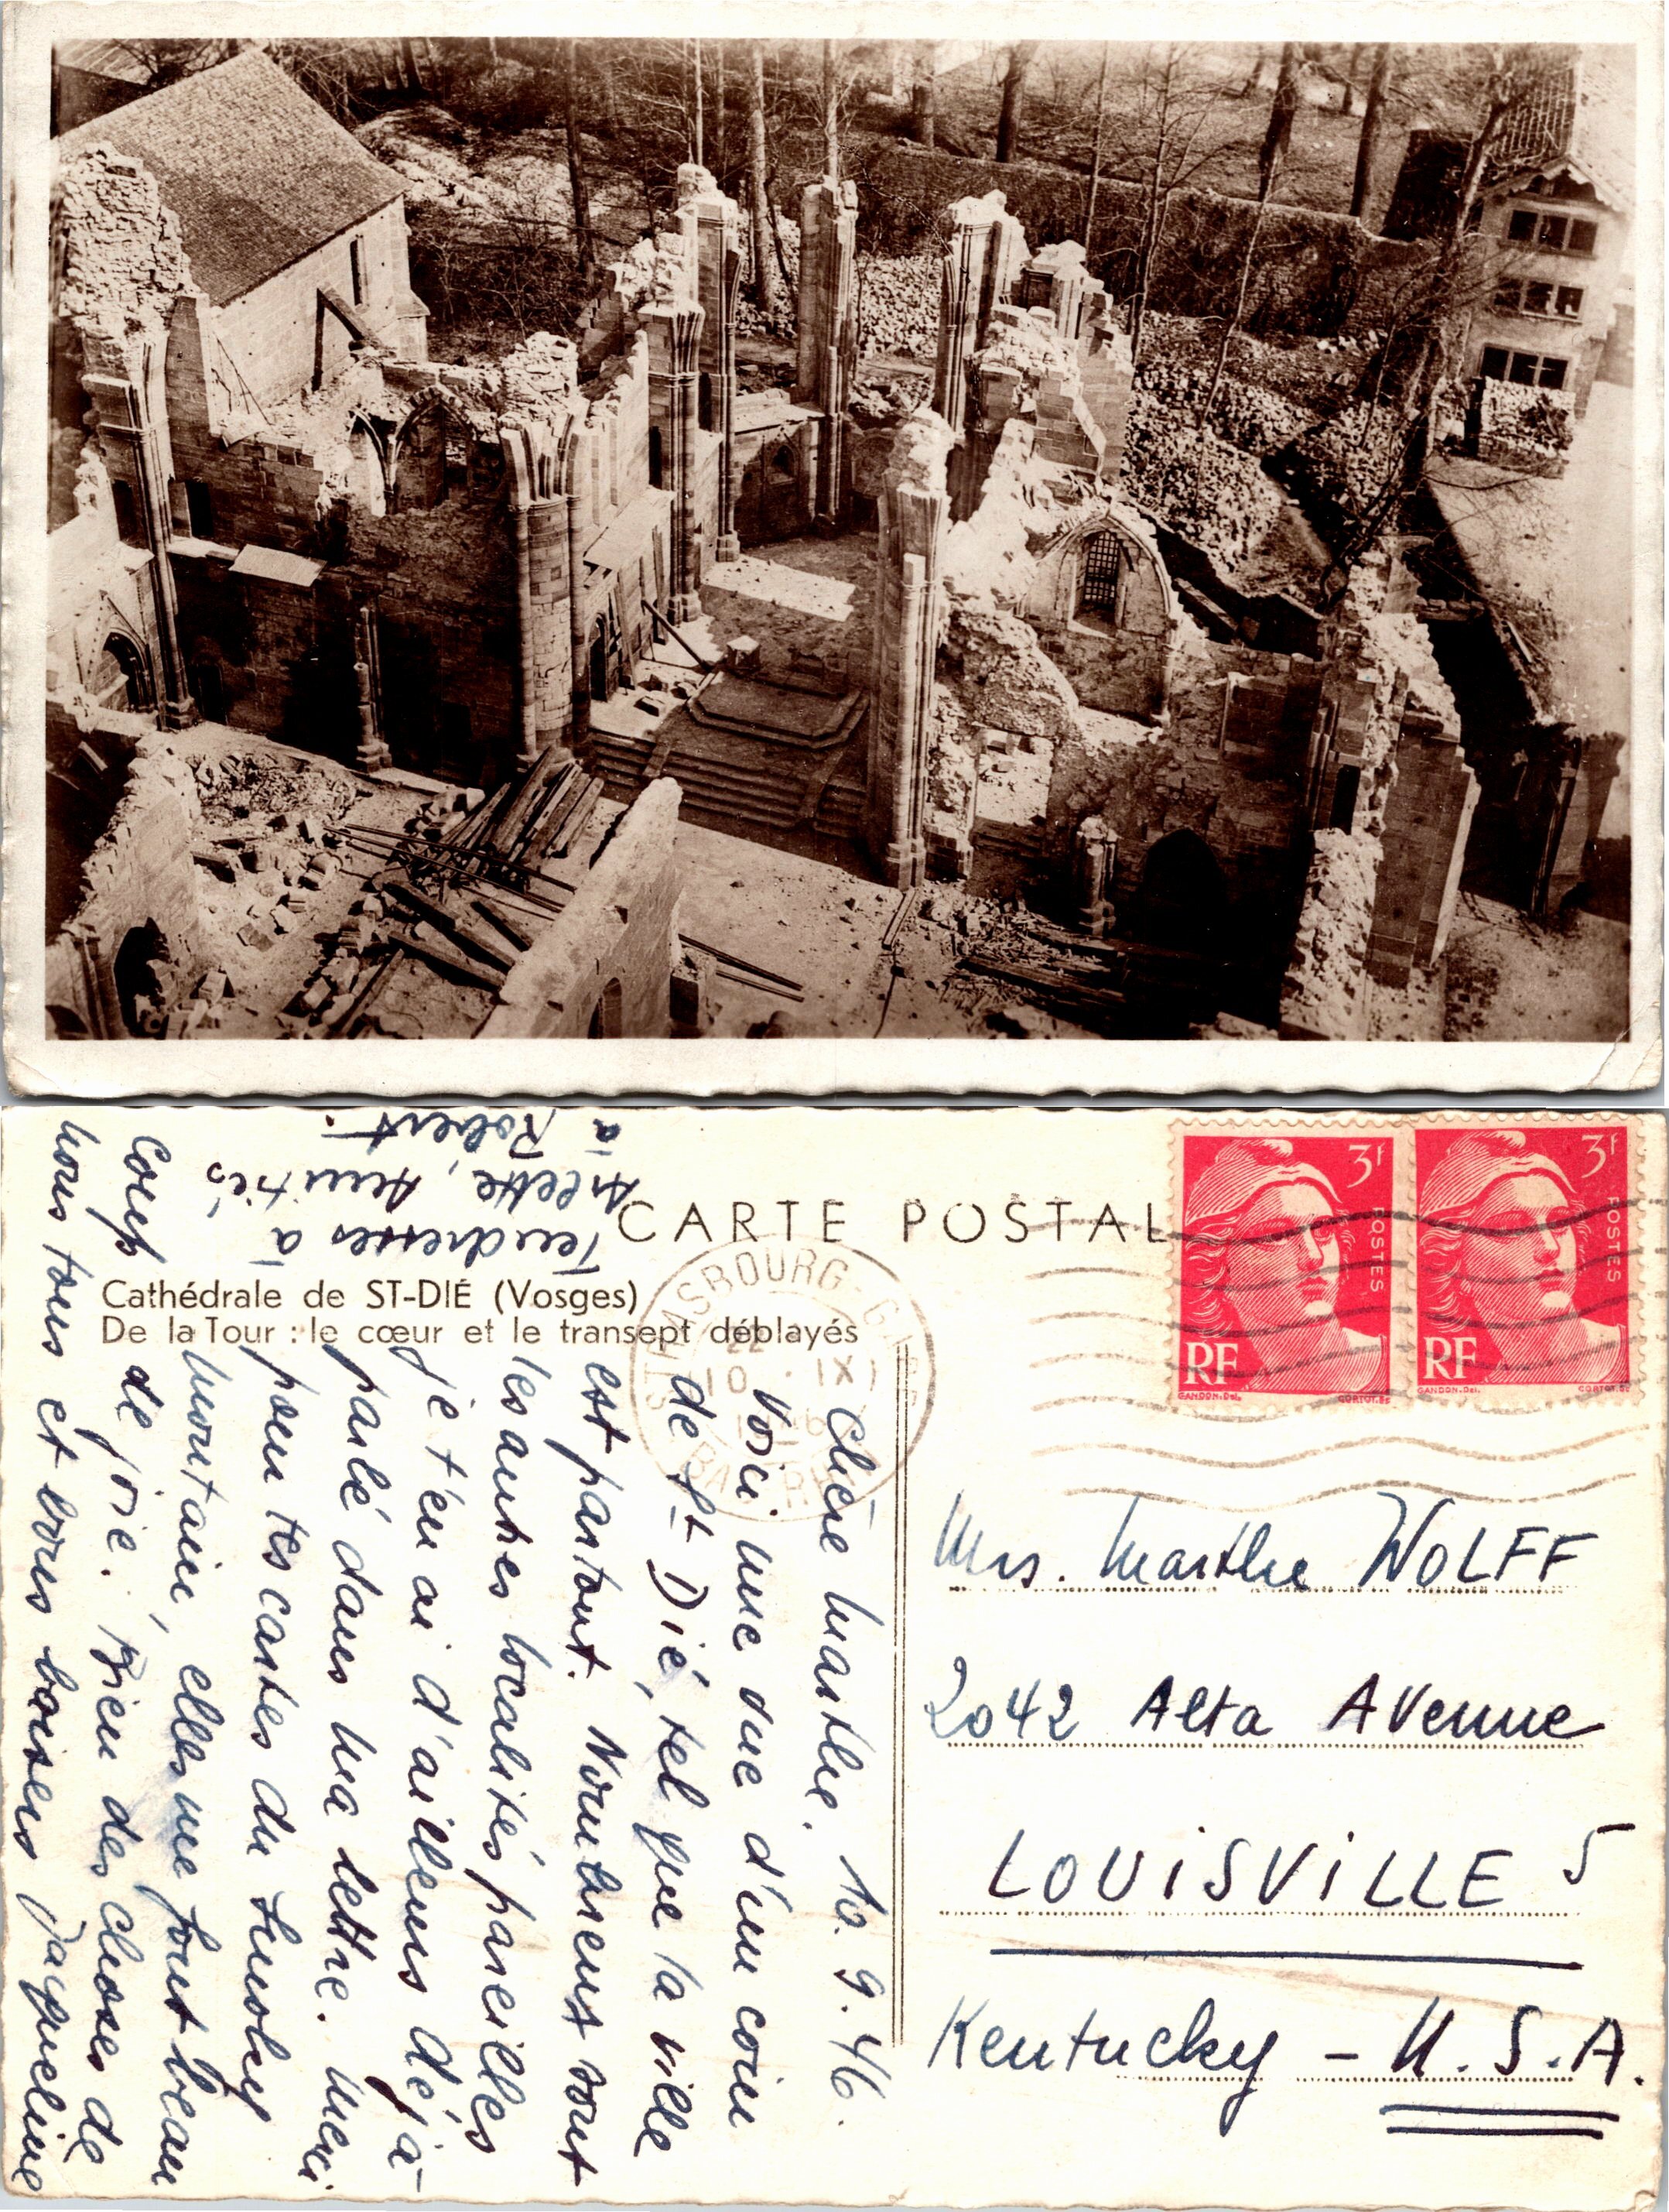 CARTE POSTALE
Cathédrale de ST-DIÉ (Vosges)
De la Tour : le cœur et le transept déblayés
STRASBOURG-GARE
22
10 · IX
BAS RHIN
3f
POSTES
RF
GANDON.Del.
CORTOT.sc
3f
POSTES
RF
GANDON.Del.
CORTOT.sc
Mrs. Marthe WOLFF
2042 Alta Avenue
LOUiSViLLE 5
Kentucky - U.S.A.
10. 9. 46.
Chère Marthe,
Voici une vue d'un coin
de St Dié, tel que la ville
est partout. Nombreux sont
les autres localités pareilles
je t'en ai d'ailleurs déjà
parlé dans ma lettre. Merci
pour tes cartes du Smoky
Montain, elles me font beau
coup de joie. Bien des choses de
nous tous et bons baisers Jacqueline
Tendresses à
Arlette, Amitiés
à Robert.